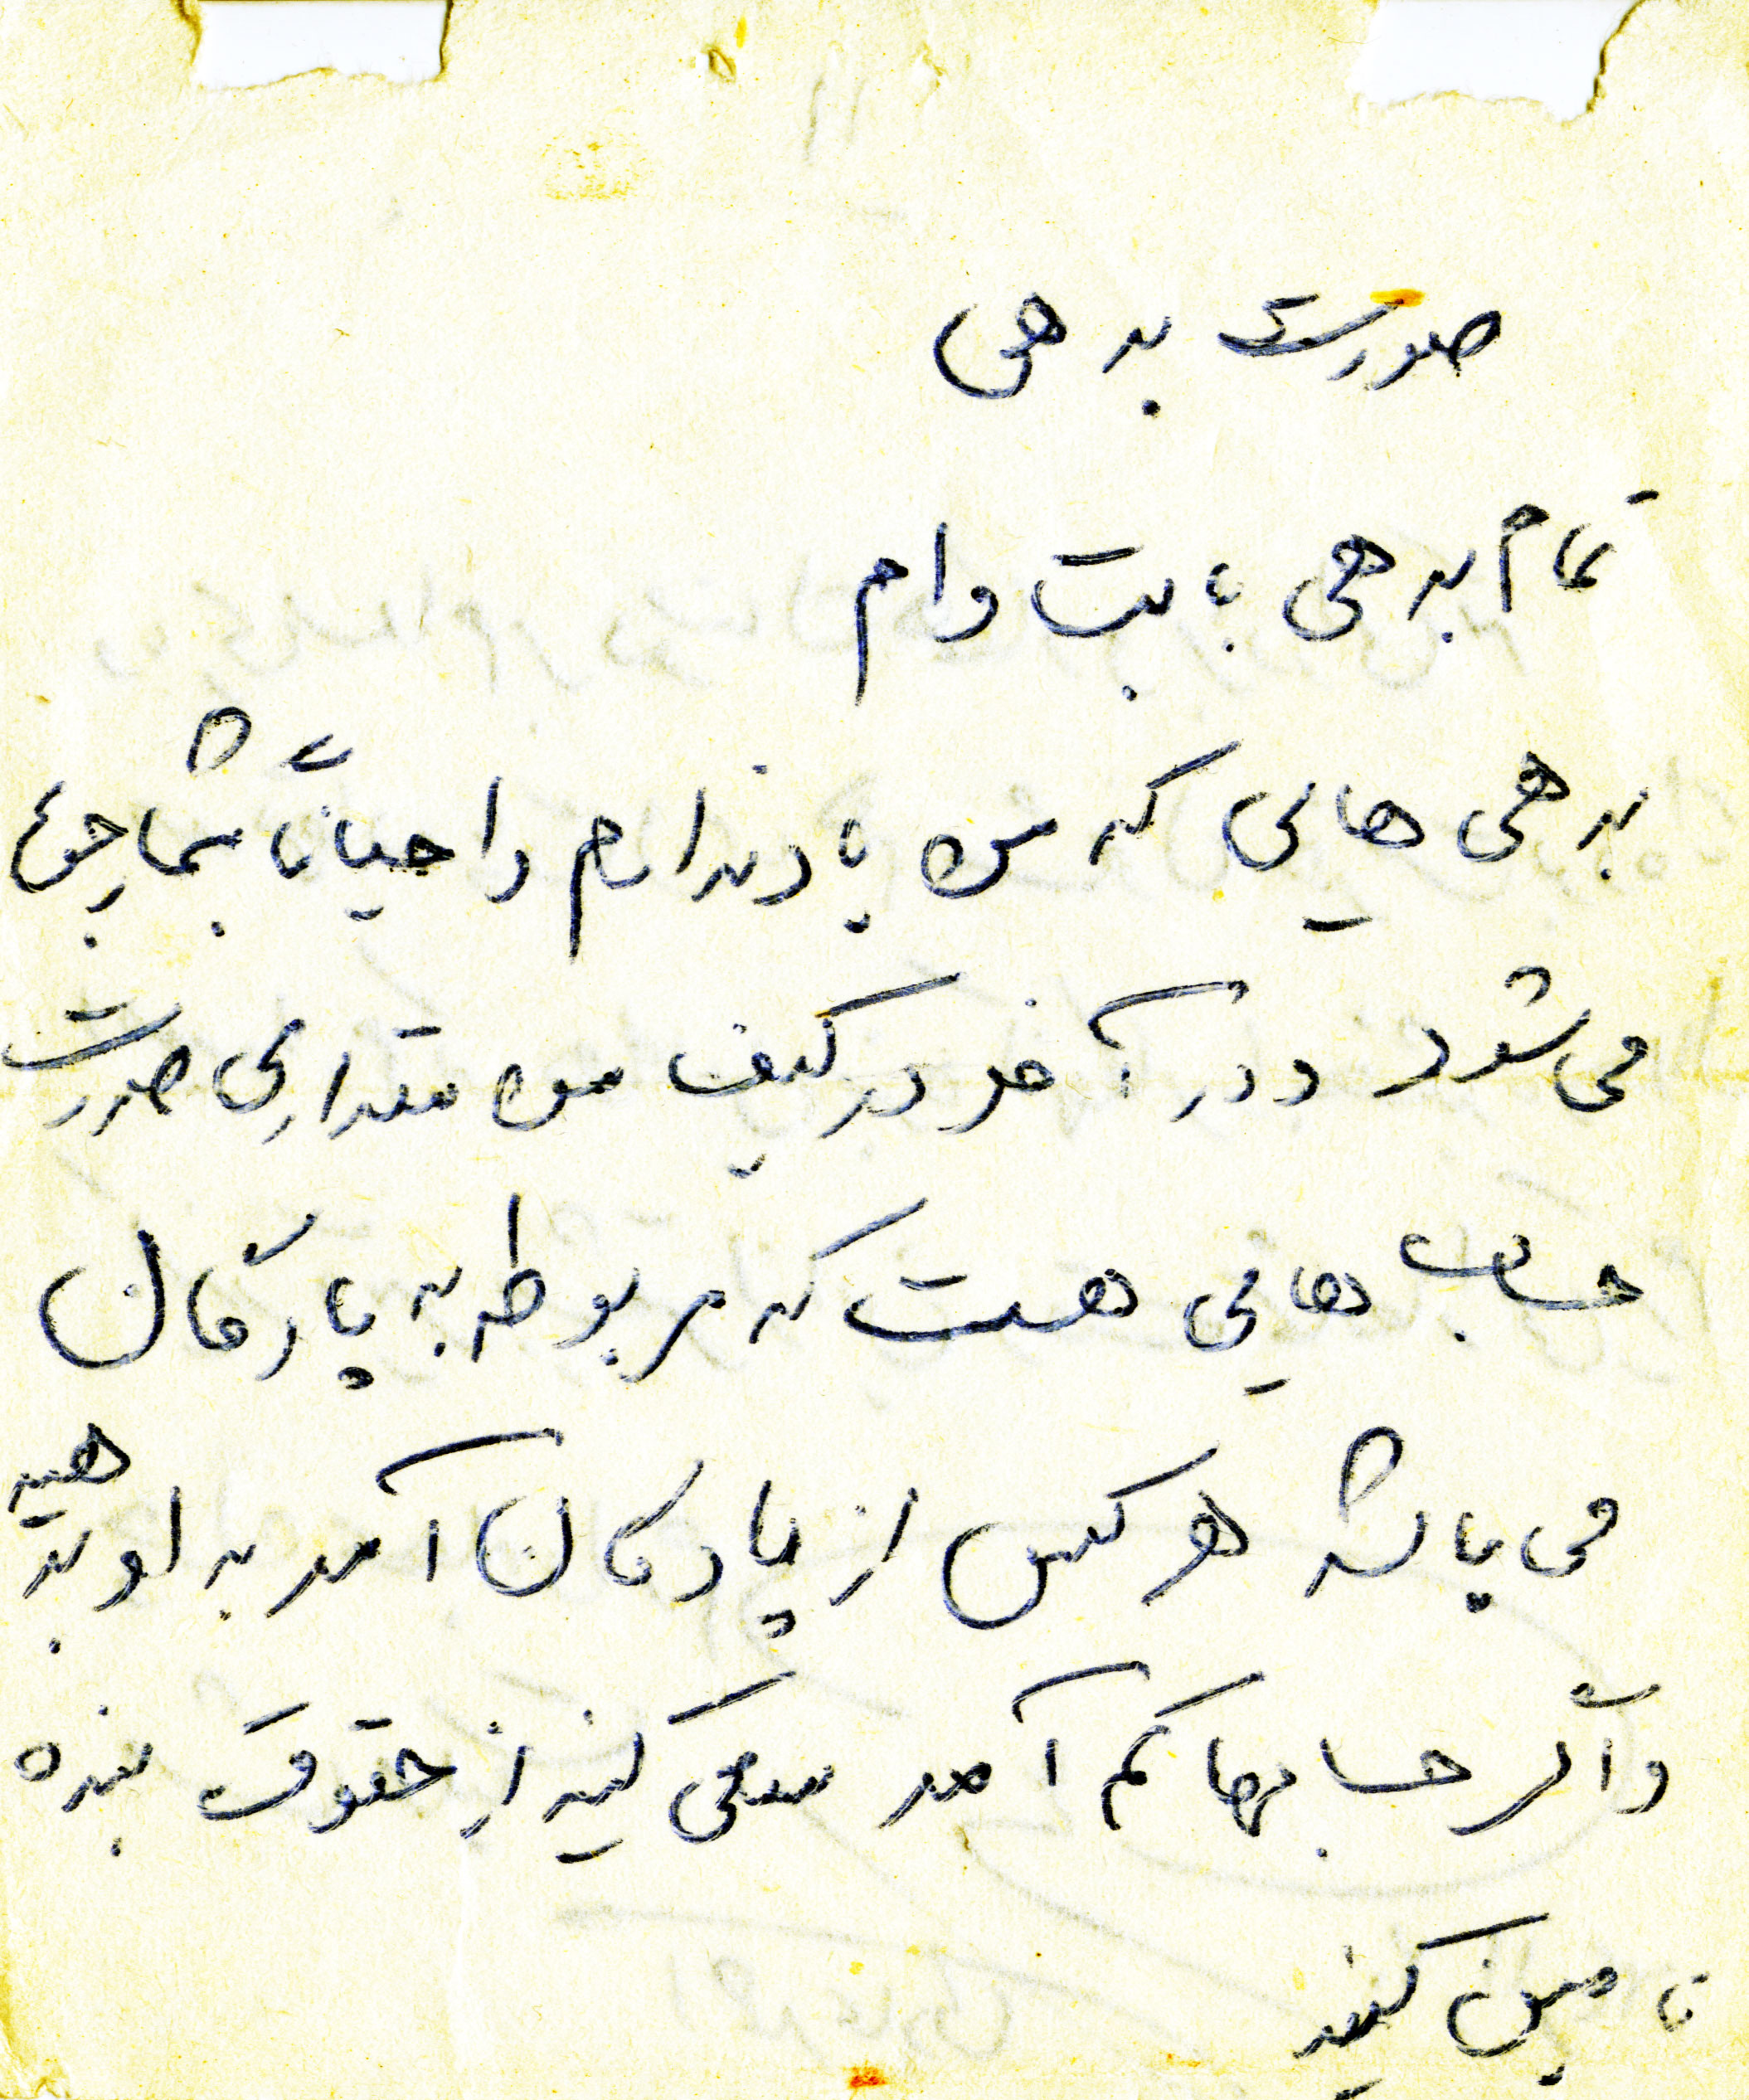 صورت بدهی
تمام بدهی بابت وام
بدهی هایی که من یاد ندارم و احیاناً بشما رجوع
می شود و در آخر در کیف من مقداری صورت
حساب هایی هست که مربوط به پادگان
می باشد هر کس از پادگان آمد به او بدهید
و اگر حسابها کم آمد سعی کنید از حقوق بنده
تامین کنید